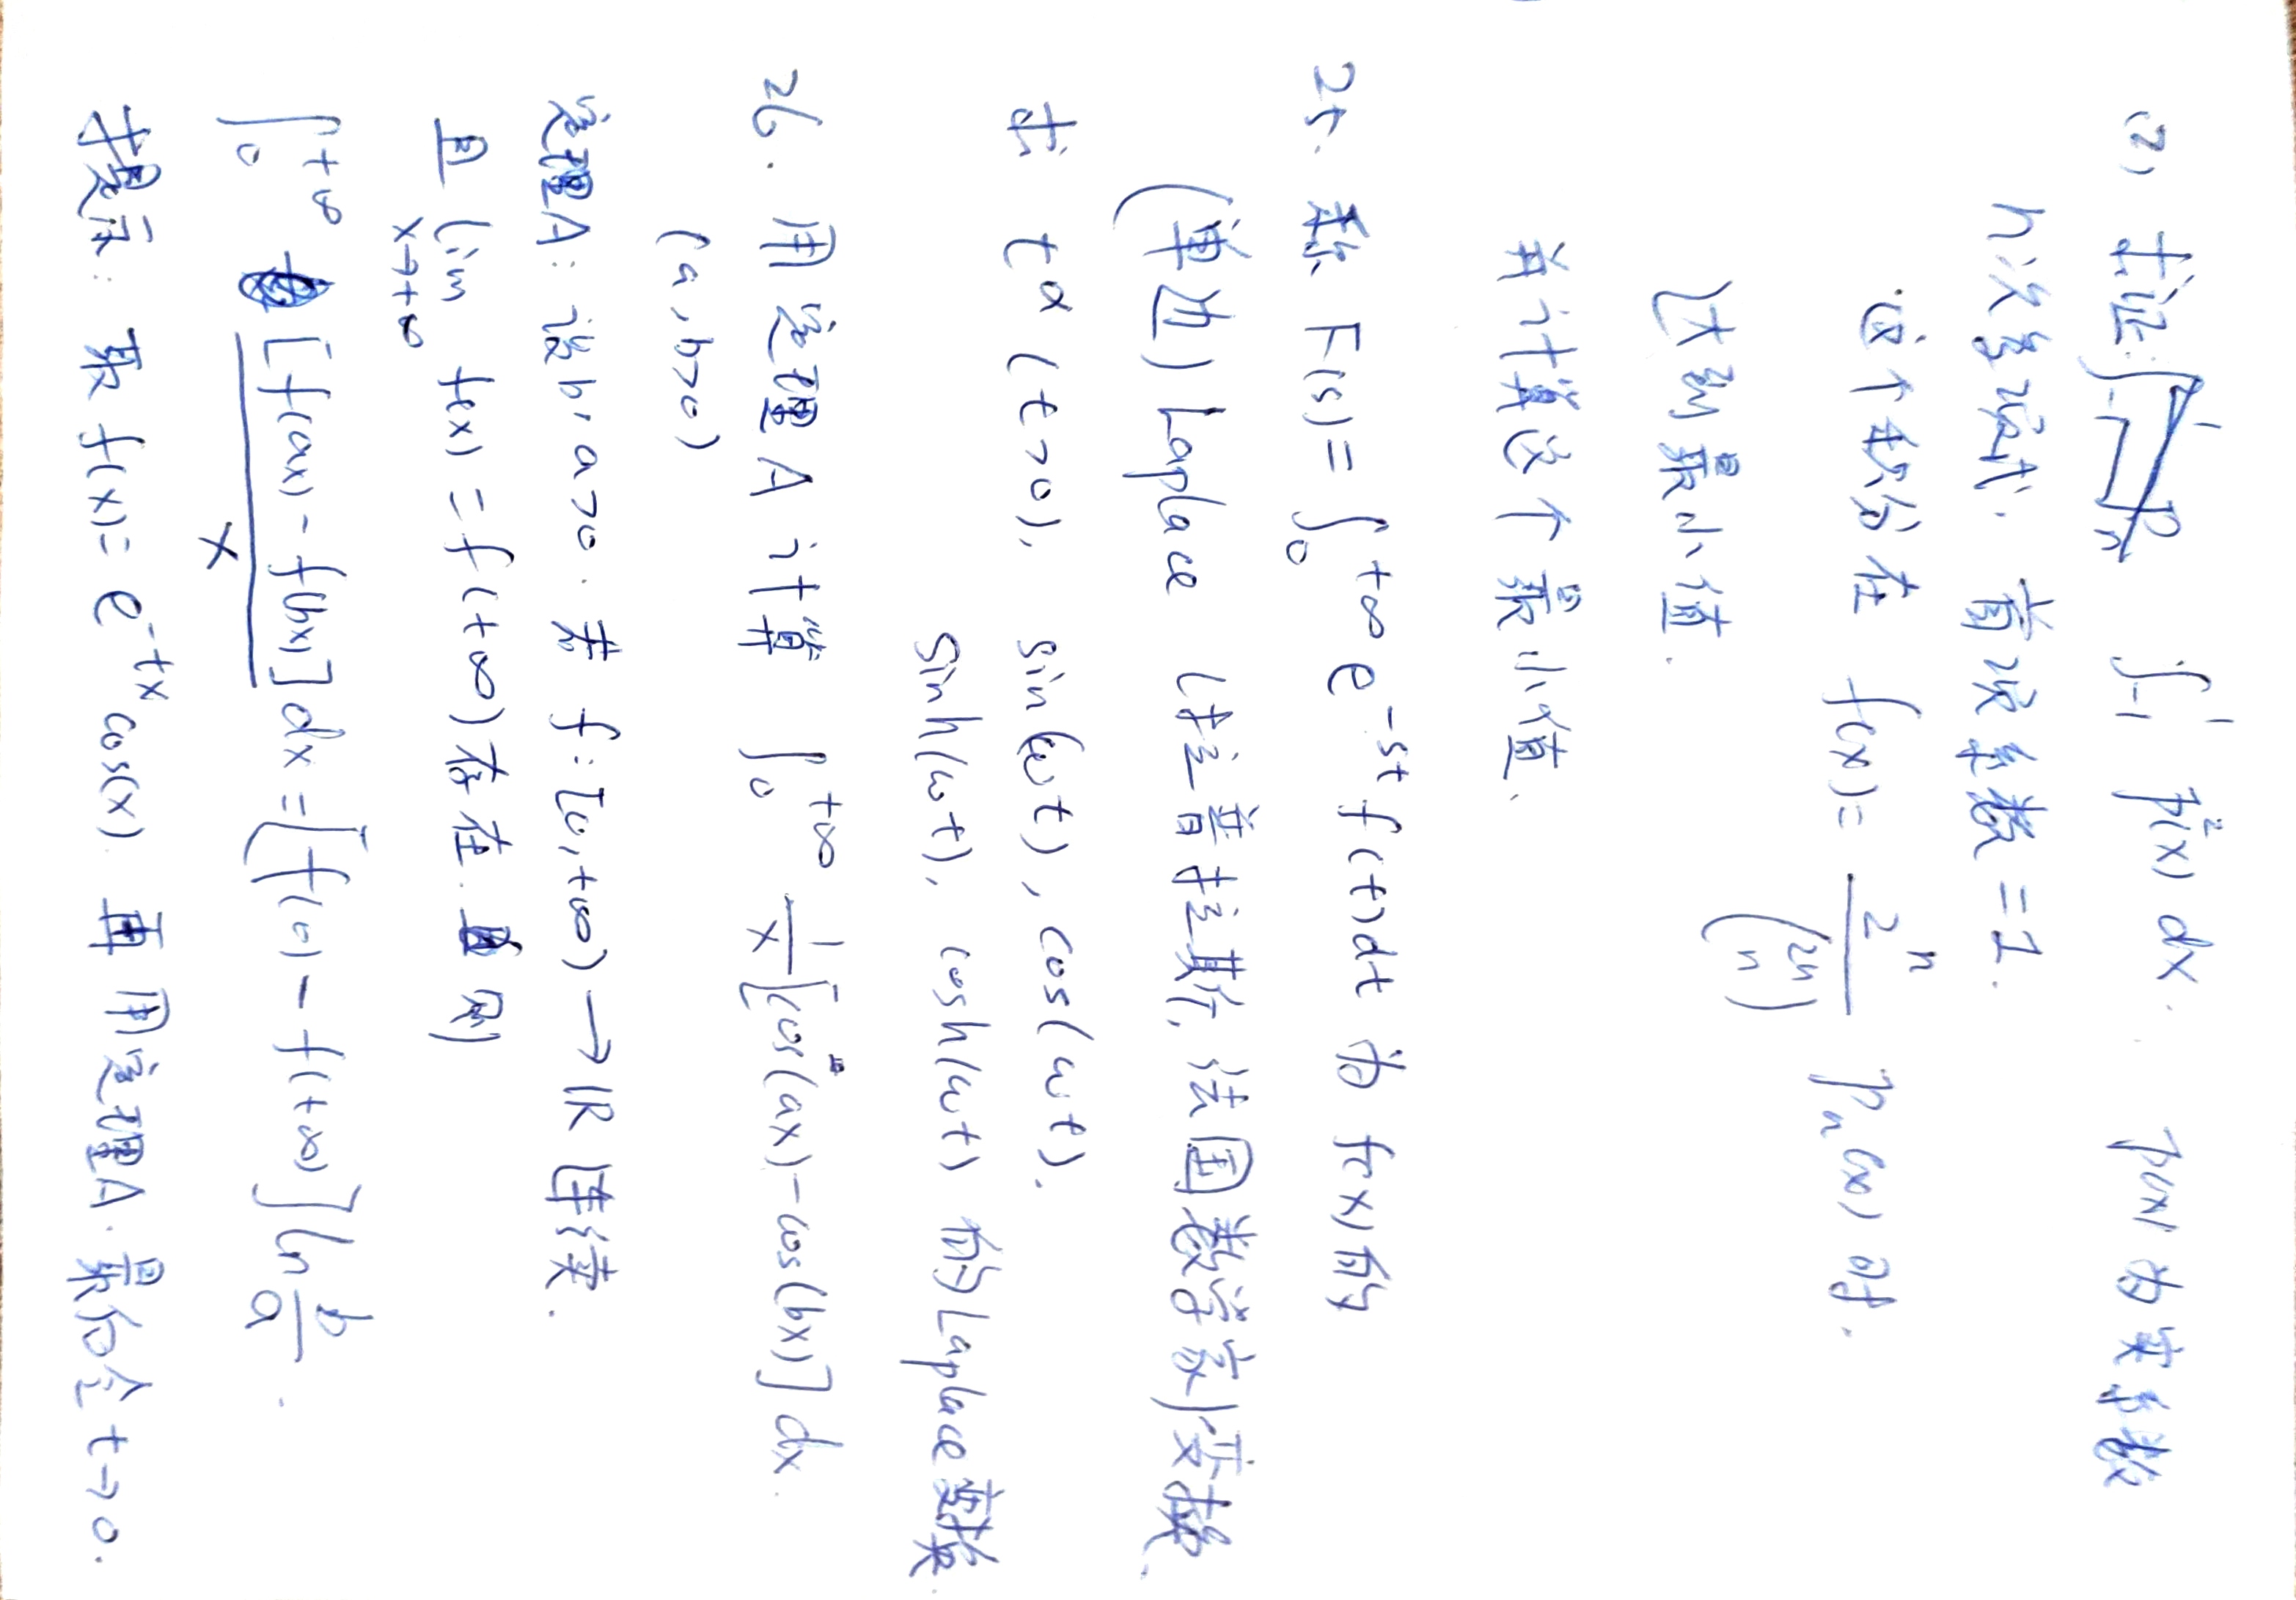 (2) 求证: ∫_{-1}^{1} p²(x) dx. p(x) 为实系数
n次多项式. 首项系数=1.
这个积分在 f(x)= \frac{2^n}{\binom{2n}{n}} p_n(x) 时.
达到最小值.
并计算这个最小值.
25. 称 F(s)= ∫_0^{+∞} e^{-st} f(t)dt 为 f(x) 的
(单边) Laplace (拉普拉斯, 法国数学家) 变换.
求 t^α (t>0), sin(ωt), cos(ωt).
sinh(ωt), cosh(ωt) 的Laplace变换.
26. 用定理A计算 ∫_0^{+∞} \frac{1}{x}[cos(ax)-cos(bx)] dx.
(a,b>0)
定理A: 设b,a>0. 若 f:[0,+∞)→ℝ 连续.
且 lim_{x→+∞} f(x)=f(+∞) 存在. 则
∫_0^{+∞} \frac{[f(ax)-f(bx)]}{x} dx=[f(0)-f(+∞)] ln \frac{b}{a}.
提示: 取 f(x)= e^{-tx} cos(x). 再用定理A. 最后令 t→0.